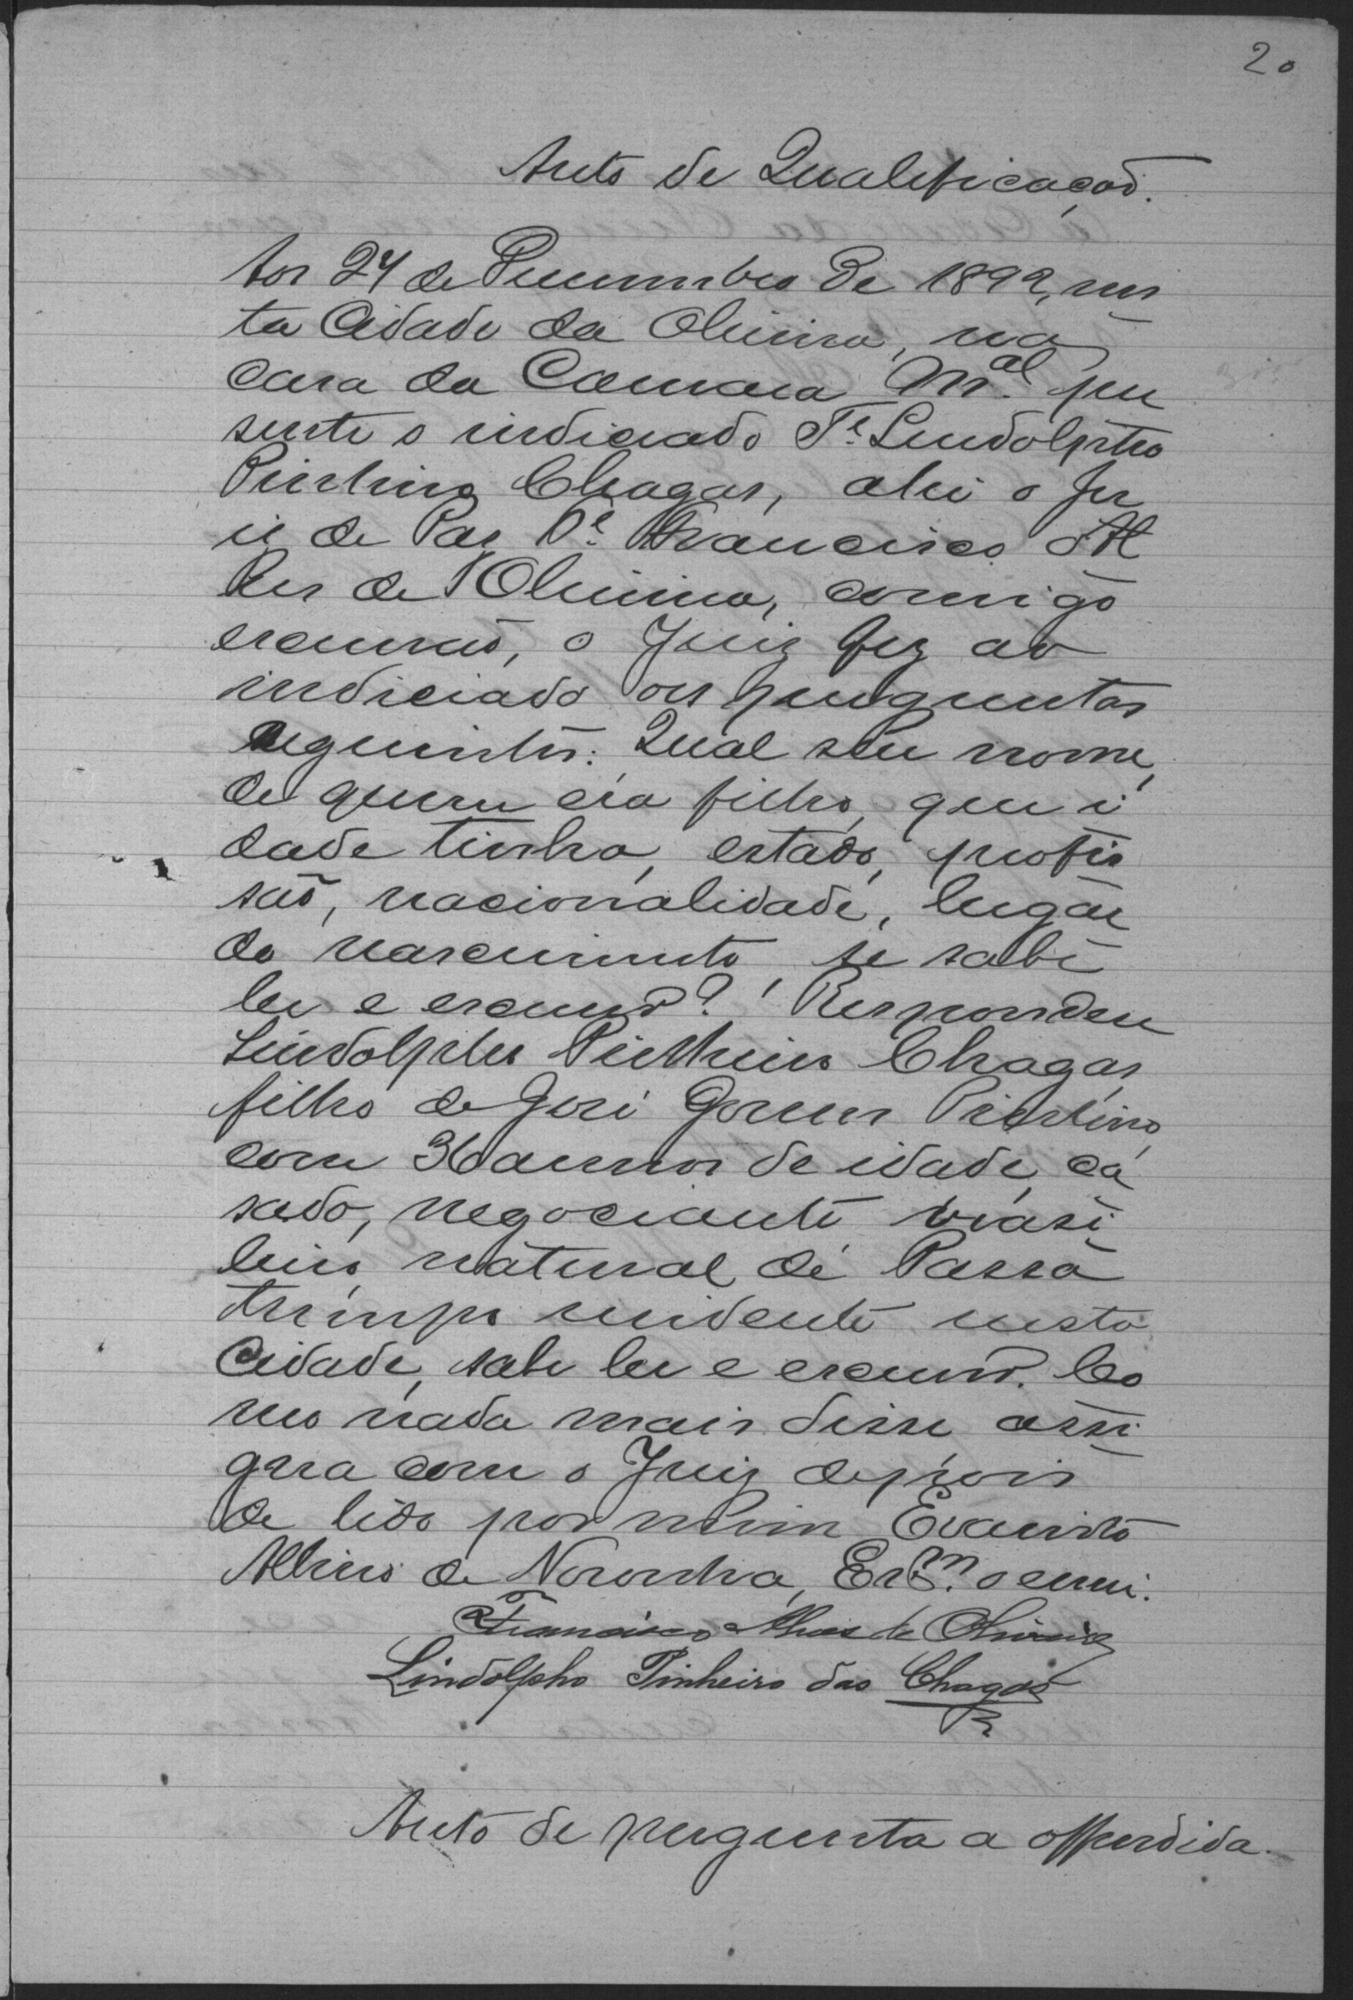 20
Auto de Qualificação.
Aos 24 de Desembro de 1892, nes
ta Cidade da Oliveira, na
casa da Camara M.al pre
sente o indiciado Te. Lindolpho
Pinheiro Chagas, ahi o Ju
is de Pas Francisco Al
ves de Oliveira, comigo
escrivão, o Juiz fez ao
indiciado as perguntas
seguintes: Qual seu nome,
de quem era filho, que i
dade tinha, estado, profis
são, nacionalidade, lugar
do nascimento se sabe
ler e escrever? Respondeu
Lindolpho Pinheiro Chagas,
filho de José Gomes Pinheiro,
com 36 annos de idade, ca
sado, negociante, brasi
leiro, natural de Passa
tempo residente nesta
Cidade, sabe ler e escrever. Co
mo nada mais disse assi
gna com o Juiz depois
de lido por mim Evaristo
Albino de Noronha, Es.m o escrevi.
Francisco Alves de Oliveira
Lindolpho Pinheiro das Chagas
Auto de pergunta a offendida.